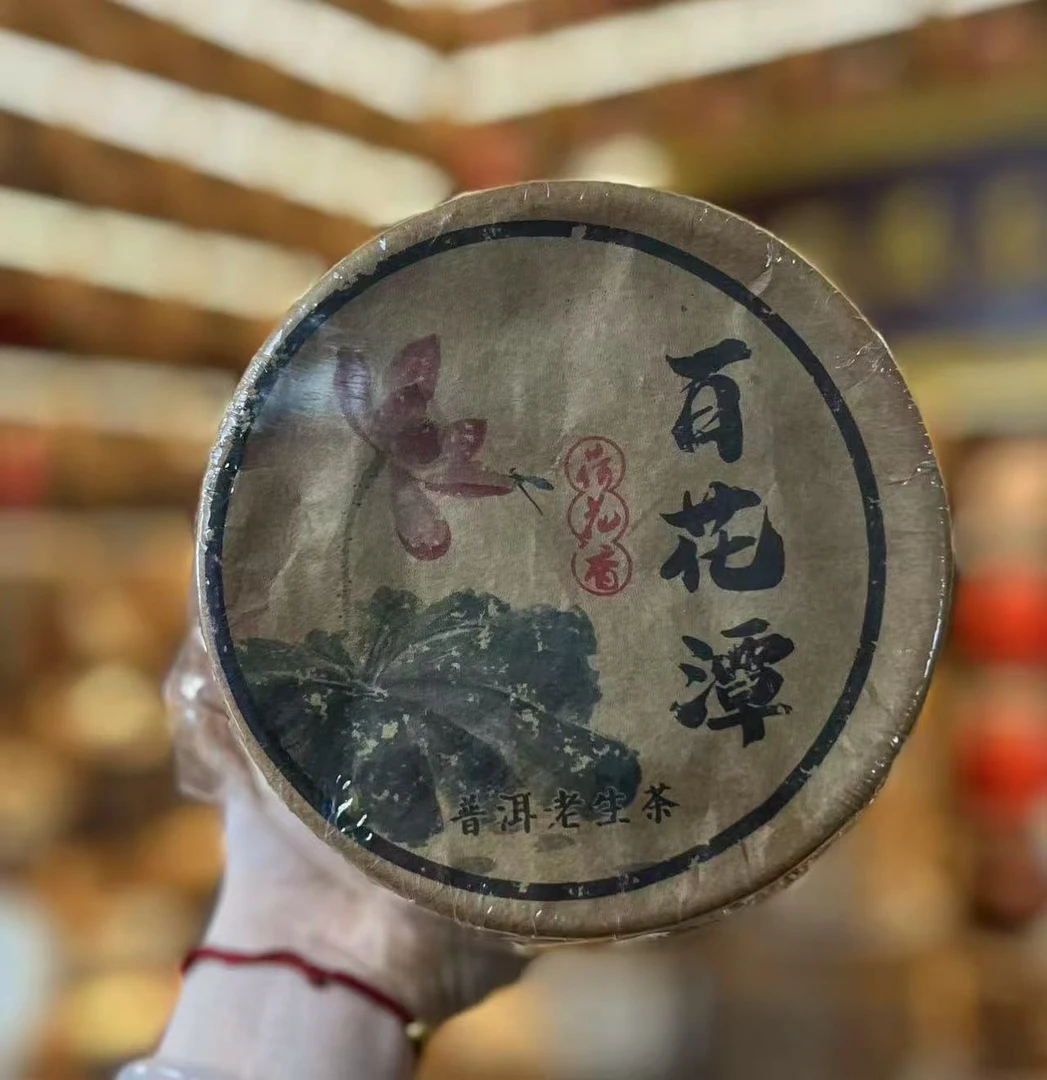 百花潭
荷花香
普洱老生茶